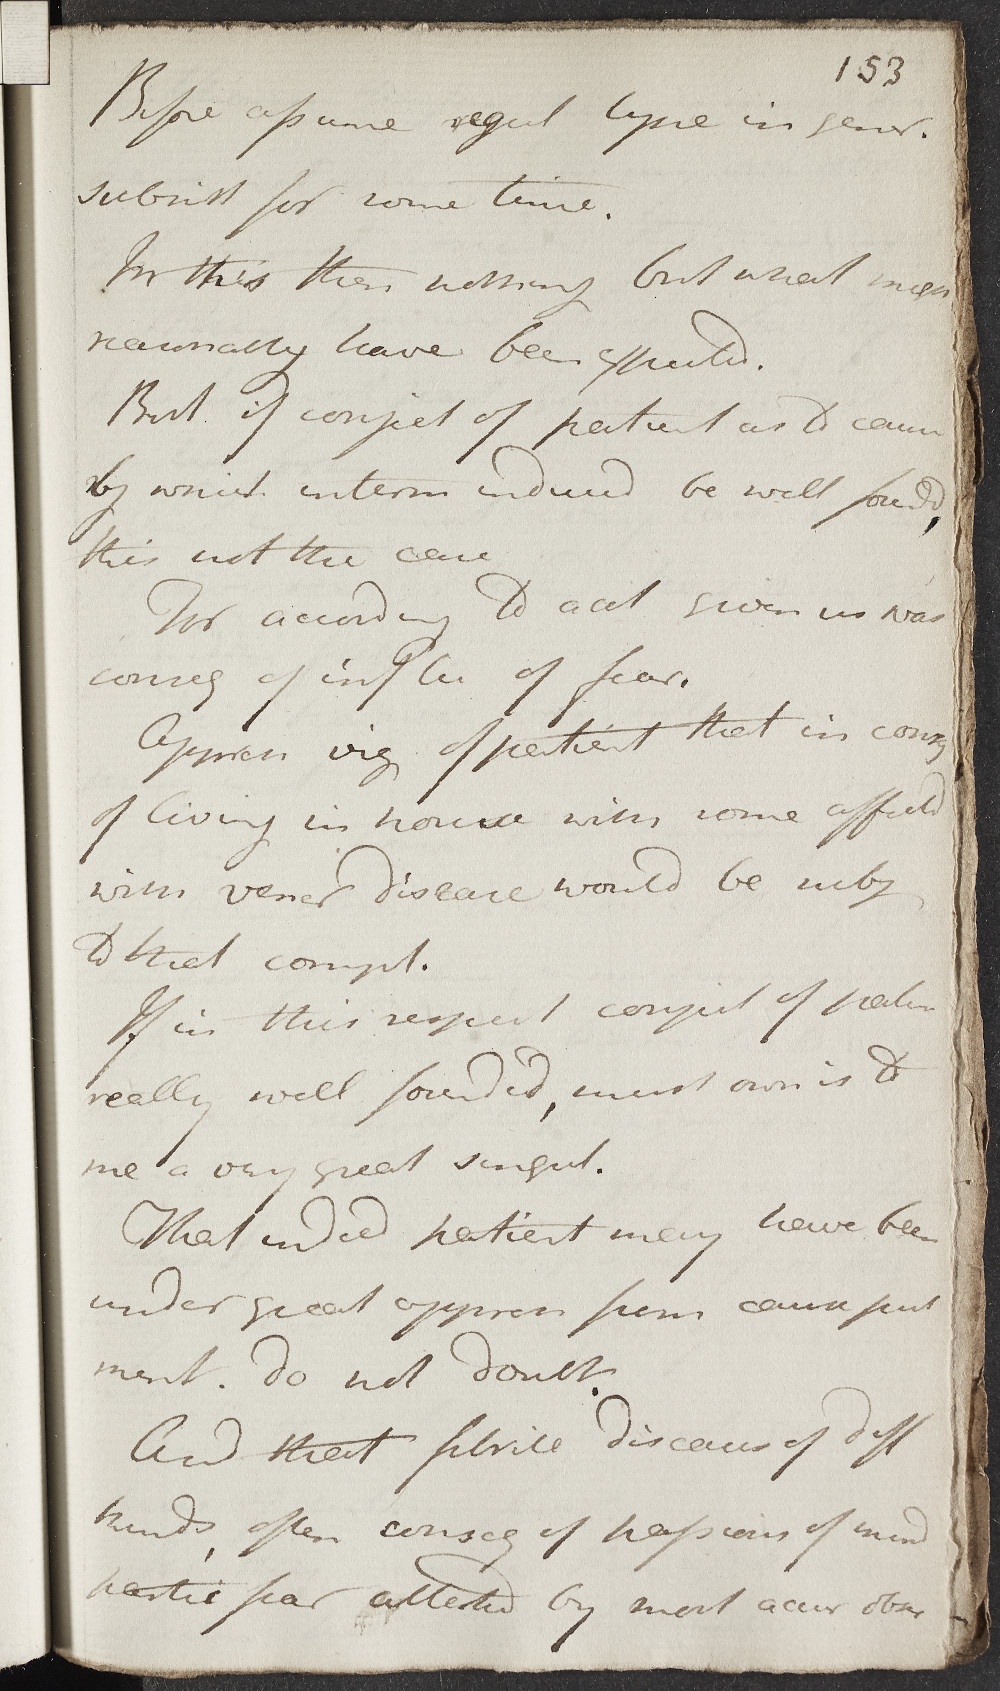 153
Before assume regul type in gener.
subsist for some time.
In this then nothing but what might
reasonably have been expected.
But if conject of patient as to cause
by which interm induced be well founded,
this not the case
For according to acct given us was
conseq of influ of fear.
Appreh viz of patient that in conseq
of living in house with some affected
with vener disease would be subj
to that compl.
If in this respect conject of patien
really well founded, must own is to
me a very great singul.
That indeed patient may have been
under great appreh from cause just
ment. do not doubt.
And that febrile diseases of diff
kinds, often conseq of passions of mind
partic fear attested by most accur obser